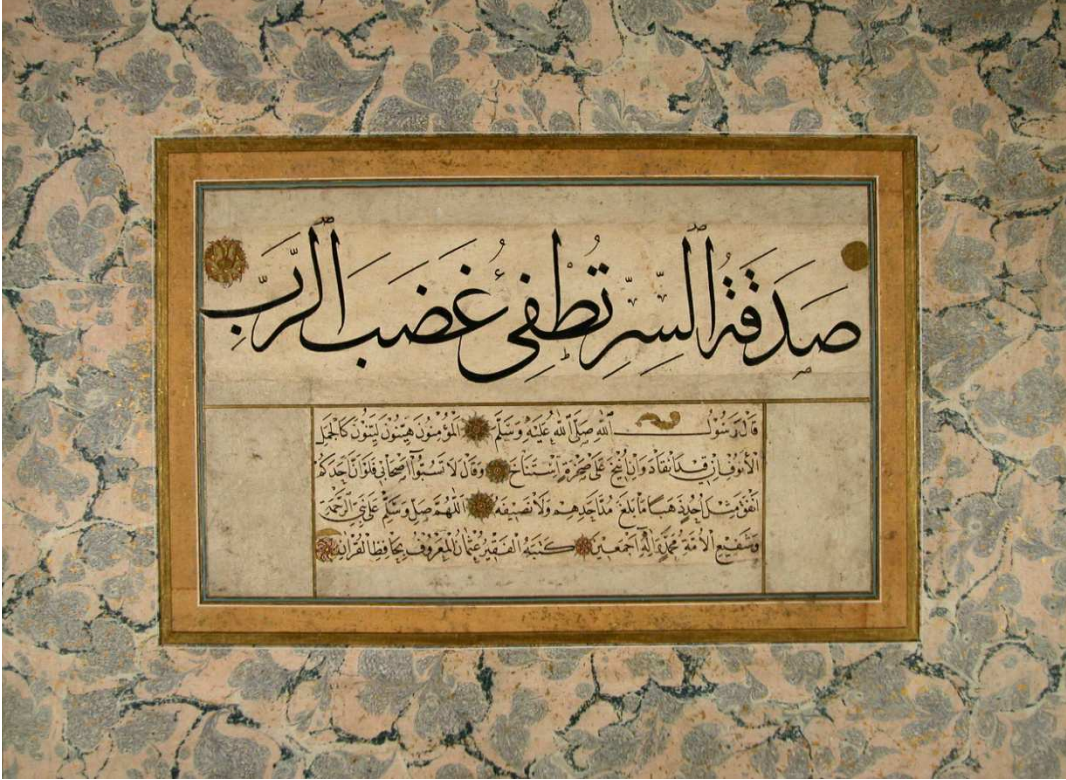 صَدَقَةُ السِّرِّ تُطْفِئُ غَضَبَ الرَّبِّ
قَالَ رَسُولُ اللّٰهِ صَلَّى اللّٰهُ عَلَيْهِ وَسَلَّمَ الْمُؤْمِنُونَ هَيِّنُونَ لَيِّنُونَ كَالْجَمَلِ
الْأَنِفِ اِنْ قِيدَ انْقَادَ وَاِنْ اُنِيخَ عَلَى صَخْرَةٍ اِسْتَنَاخَ وَقَالَ لَا تَسُبُّوا اَصْحَابِي فَلَوْ اَنَّ اَحَدَكُمْ
اَنْفَقَ مِثْلَ اُحُدٍ ذَهَبًا مَا بَلَغَ مُدَّ اَحَدِهِمْ وَلَا نَصِيفَهُ اَللّٰهُمَّ صَلِّ وَسَلِّمْ عَلَى نَبِيِّ الرَّحْمَةِ
وَشَفِيعِ الْاُمَّةِ مُحَمَّدٍ وَاٰلِهِ اَجْمَعِينَ كَتَبَهُ الْفَقِيرُ عُثْمَانُ الْمَعْرُوفُ بِحَافِظِ الْقُرْاٰنِ